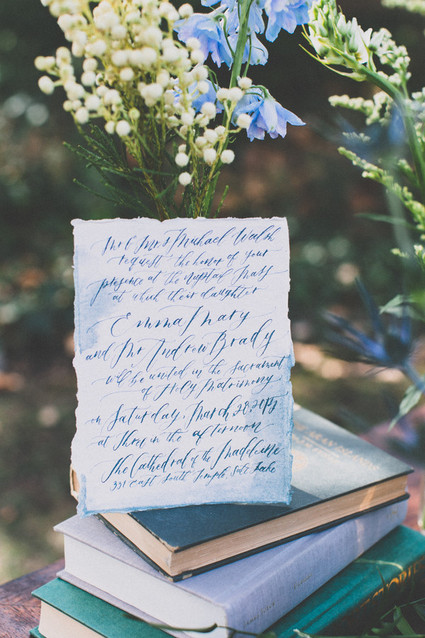 Mr & Mrs Michael Walsh
request the honor of your
presence at the nuptial Mass
at which their daughter
Emma Mary
and Mr Andrew Brady
will be united in the sacrament
of Holy Matrimony
on Saturday, March
in the afternoon
The Cathedral of the Madeleine
331 East South Temple Salt Lake